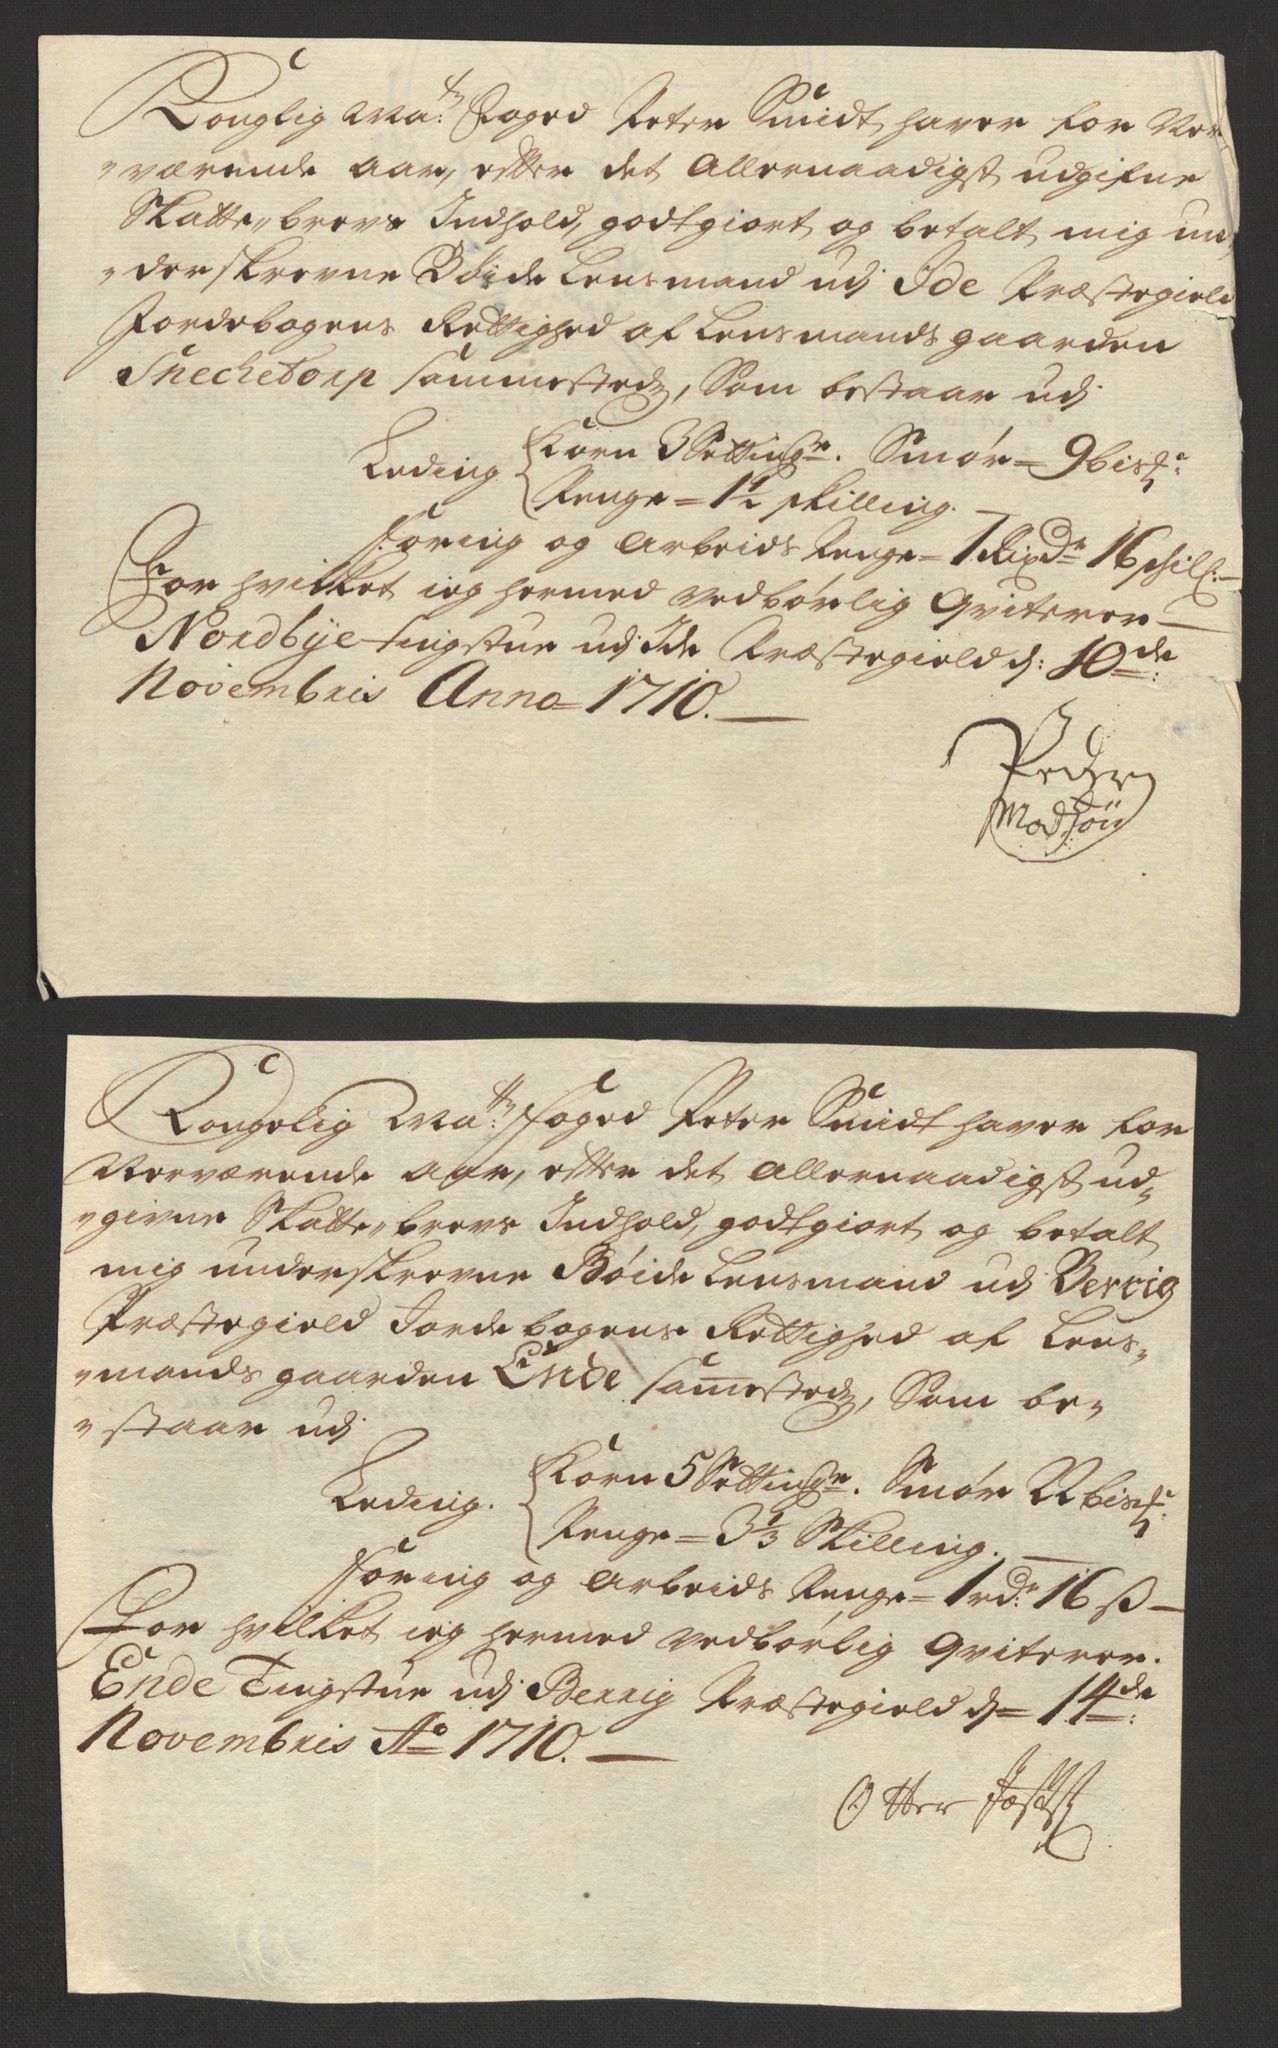 Konglig Ma:ts Foged Peter Smidt haver for Ner-
"værende aar, efter det allernaadigst udgifne
Skatte" brevs Indhold, godtgiort og betalt mig un"
"derskrevne Böide Lensmand udj Ide Præstegield
Jordebogens Rettighed af Lensmands gaarden
Snechetorp sammesteds, Som bestaar udj
Leding { Korn 3 Settingr. Smör = 9 bispd:
Penge = 1 1/2 skilling. —
Foring og arbeids Penge = 1 Rixdr 16 skill: —
For hvilket ieg hermed vedbörlig Qviterer —
Nordbye tingstue udj Ide Præstegield d: 10de
Novembris Anno = 1710. —
Peder
Madsön
Kongelig Ma:ts Foged Peter Smidt haver for
Nerværende aar, efter det allernaadigst ud"
"givne Skatte" brevs Indhold, godtgiort og betalt
mig underskrevne Böide Lensmand udj Berrig
Præstegield Jordebogens Rettighed af Lens"
"mands gaarden Ende samesteds, Som be"
"staar udj
Leding. { Korn 5 Settingr. Smör 22 bispd:
Penge = 3 1/3 Skilling. —
Foring og arbeids Penge = 1 rdr: 16 ß —
For hvilket ieg hermed vedbörlig Qviterer.
Ende Tingstue udj Berrig Præstegield d = 14de:
Novembris Ao 1710. —
Otter